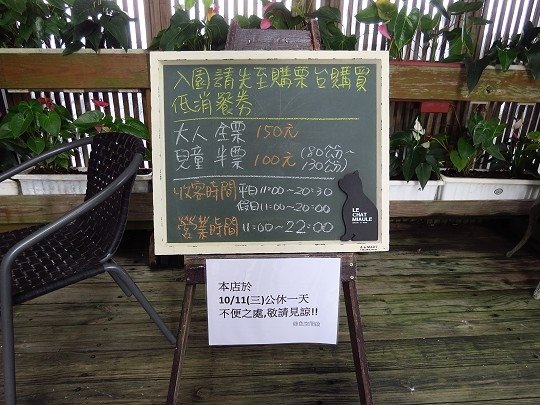 入園請先至購票台購買
低消餐券
大人 全票 150元
兒童 半票 100元 (80公分~
130公分)
收客時間 平日 11:00~20:30
假日 11:00~20:00
營業時間 11:00~22:00
LE
CHAT
MIAULE
本店於
10/11(三)公休一天
不便之處,敬請見諒!!